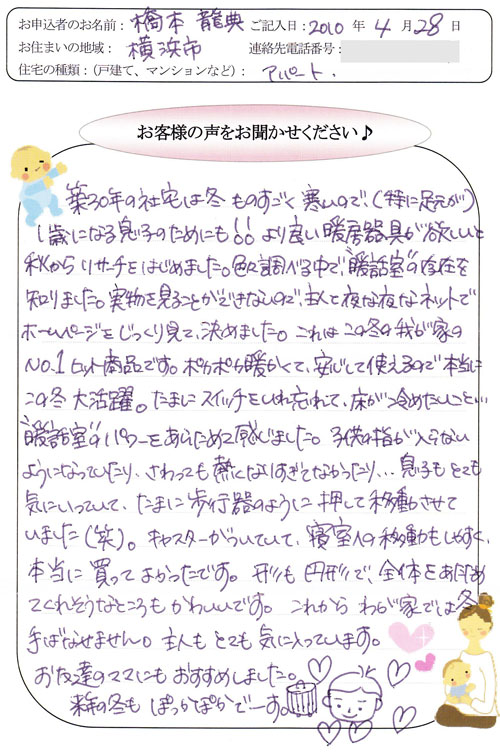 お申込者のお名前：橋本 龍典 ご記入日：2010 年 4 月 28 日
お住まいの地域： 横浜市 連絡先電話番号：
住宅の種類：（戸建て、マンションなど）： アパート．
お客様の声をお聞かせください♪
築30年の社宅は冬 ものすごく 寒いので、（特に足元が）
1歳になる息子のためにも!! より良い 暖房器具が欲しいと
秋から リサーチをはじめました。色々調べる中で、"暖話室"の存在を
知りました。実物を見ることができないので、主人と夜な夜なネットで
ホームページをじっくり見て、決めました。これは この冬の我が家の
NO.1 ヒット商品です。ポカポカ暖かくて、安心して使えるので 本当に
この冬 大活躍。たまに スイッチを入れ忘れて、床が冷めたいことい
"暖話室"のパワーをあらためて感じました。子供の指が入らない
ようになっていたり、さわっても 熱くなりすぎてなかったり... 息子も とても
気にいっていて、たまに 歩行器のように 押して 移動させて
いました（笑）。キャスターがついていて、寝室への移動もしやすく、
本当に 買って よかったです。形も 円形で、全体をあたため
てくれそうなところも かわいいです。これから わが家では 冬
手ばなせません。主人も とても 気に入っています。
お友達のママにも おすすめしました。
来年の冬も ぽっかぽかでーす。